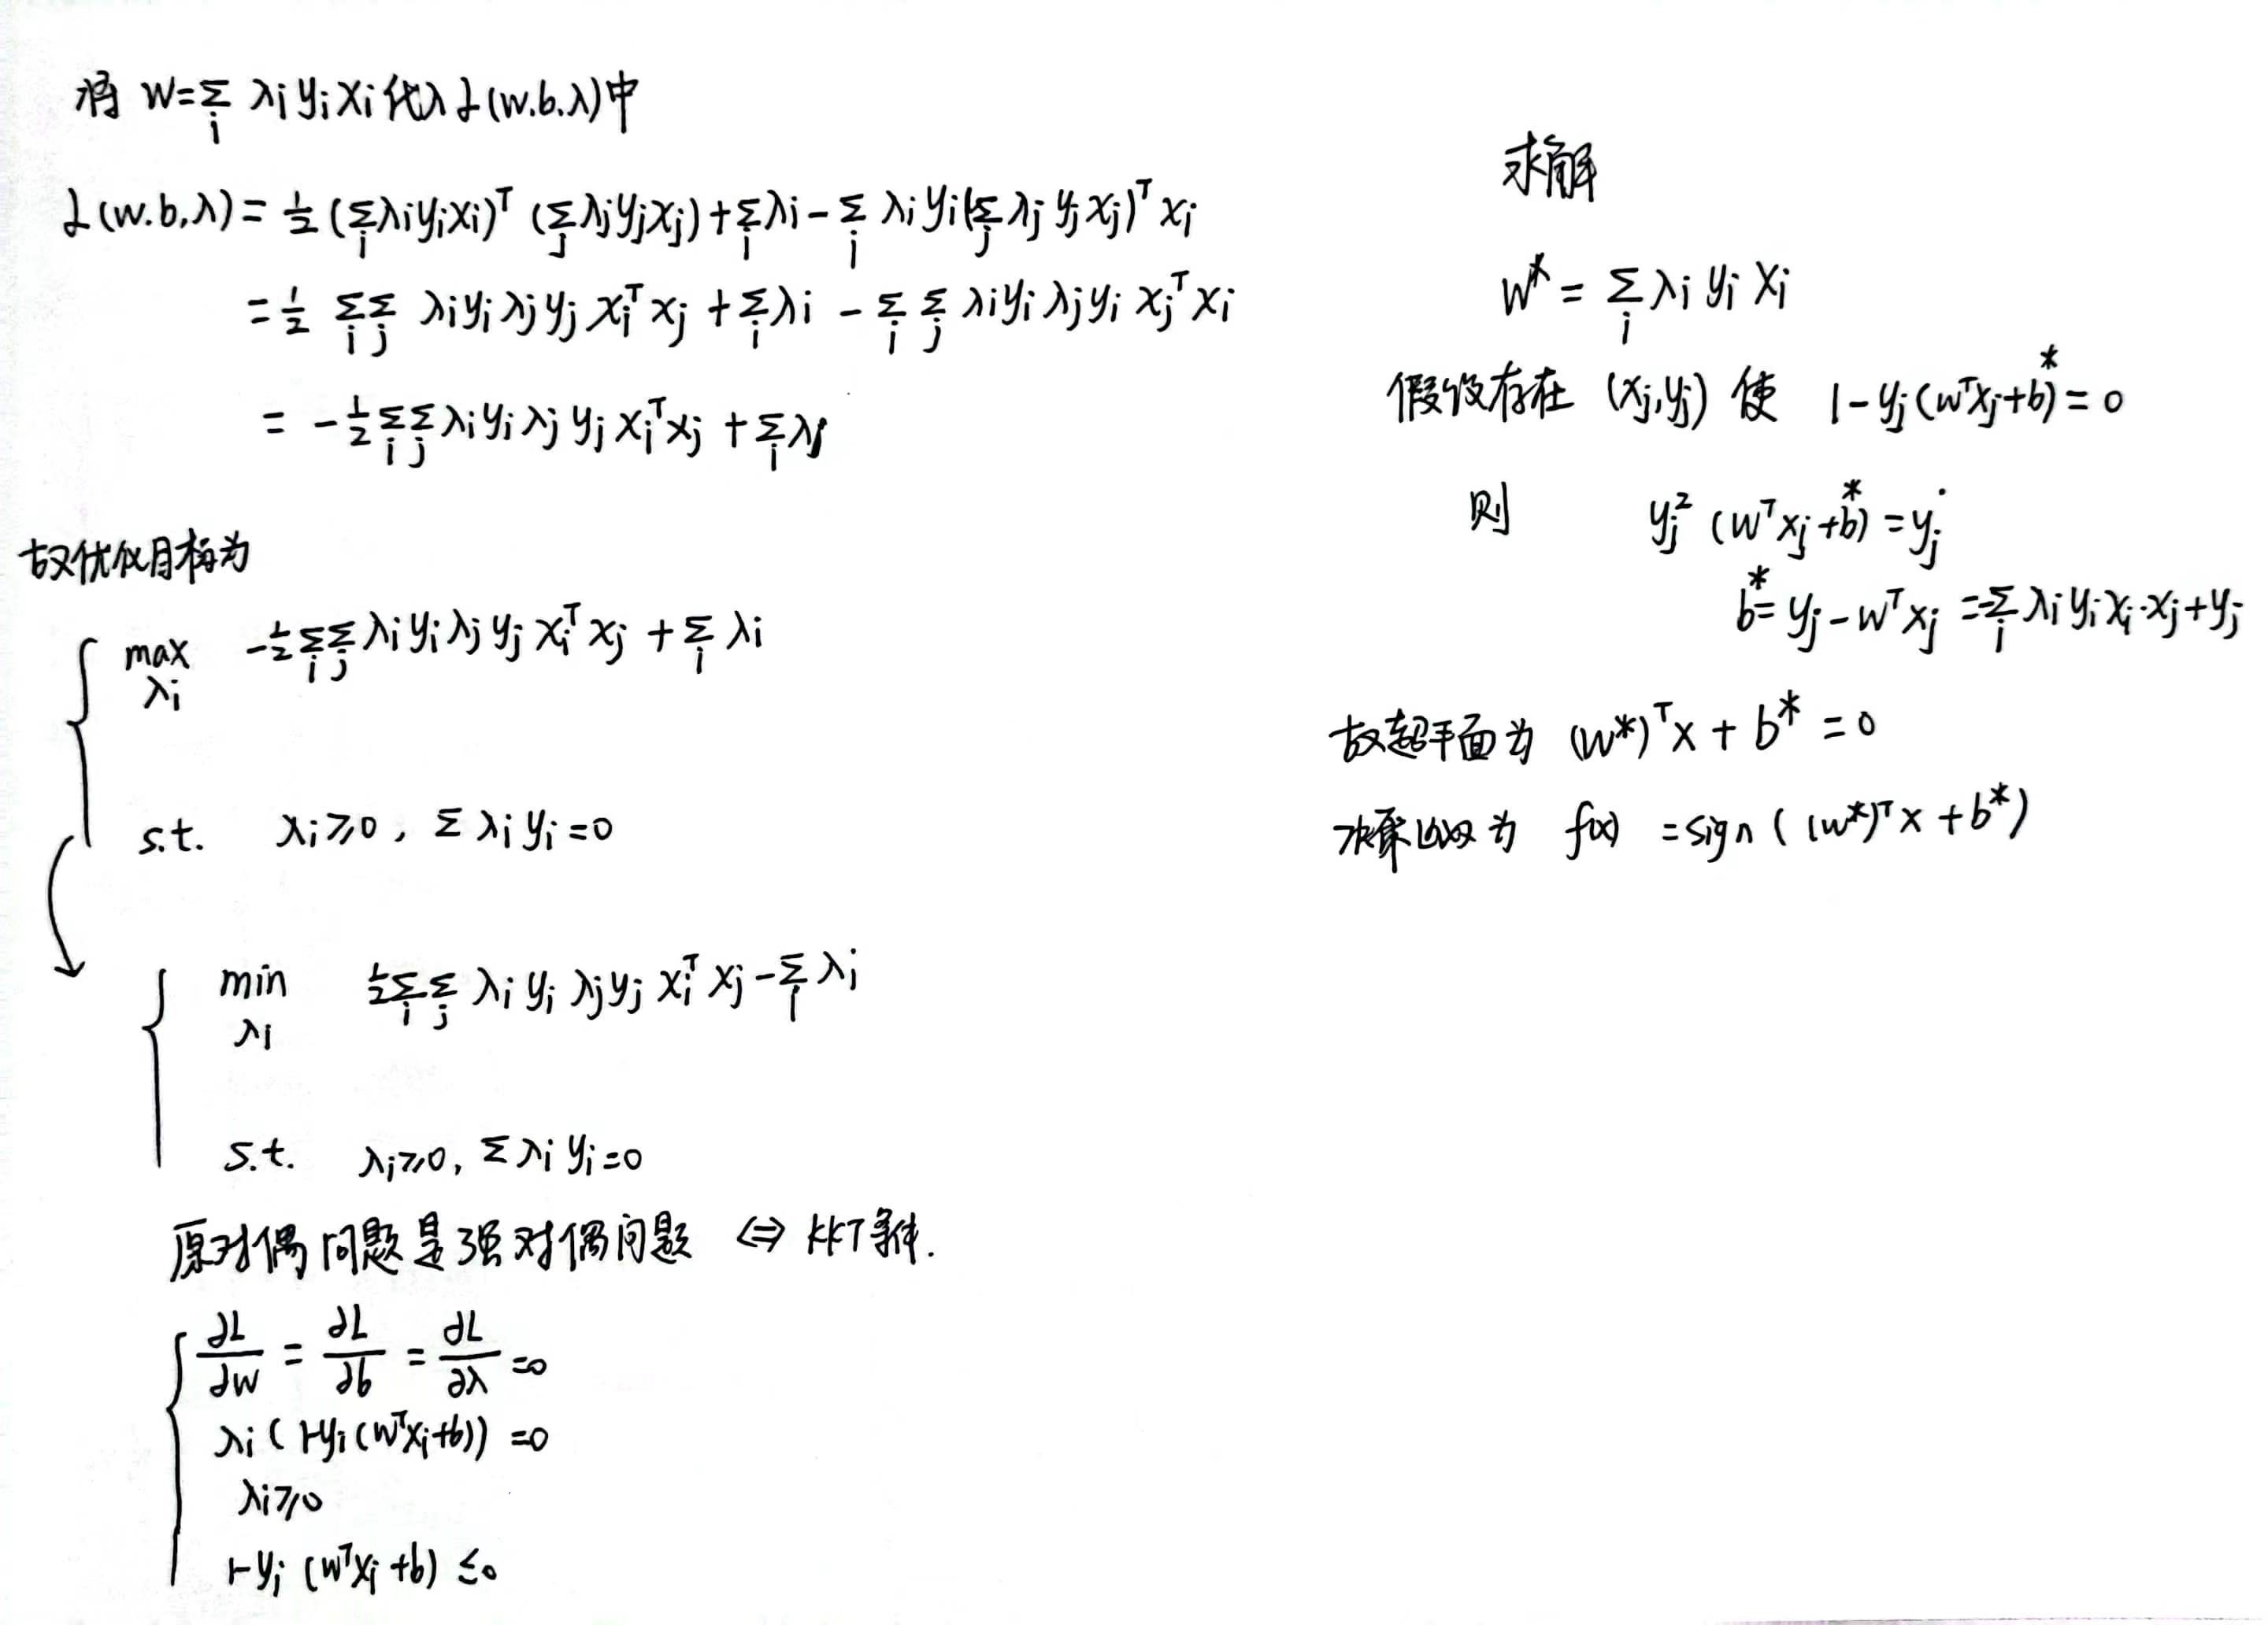 将 w=∑_i λi yi xi 代入 L(w.b.λ)中
L(w.b,λ) = 1/2 (∑_i λi yi xi)^T (∑_j λj yj xj) + ∑_i λi - ∑_i λi yi (∑_j λj yj xj)^T xi
= 1/2 ∑_i ∑_j λi yi λj yj xi^T xj + ∑_i λi - ∑_i ∑_j λi yi λj yi xj^T xi
= -1/2 ∑_i ∑_j λi yi λj yj xi^T xj + ∑_i λi
故优化目标为
max_λi -1/2 ∑_i ∑_j λi yi λj yj xi^T xj + ∑_i λi
s.t. λi ≥ 0, ∑ λi yi = 0
min_λi 1/2 ∑_i ∑_j λi yi λj yj xi^T xj - ∑_i λi
s.t. λi ≥ 0, ∑ λi yi = 0
原对偶问题是强对偶问题 ⇔ KKT条件.
∂L/∂w = ∂L/∂b = ∂L/∂λ = 0
λi (1-yi (w^T xi+b)) = 0
λi ≥ 0
1-yi (w^T xi+b) ≤ 0
求解
w* = ∑_i λi yi xi
假设存在 (xj,yj) 使 1-yj (w^T xj+b*) = 0
则 yj^2 (w^T xj+b*) = yj
b* = yj - w^T xj = -∑_i λi yi xi·xj + yj
故超平面为 (w*)^T x + b* = 0
决策函数为 f(x) = sign ( (w*)^T x + b*)